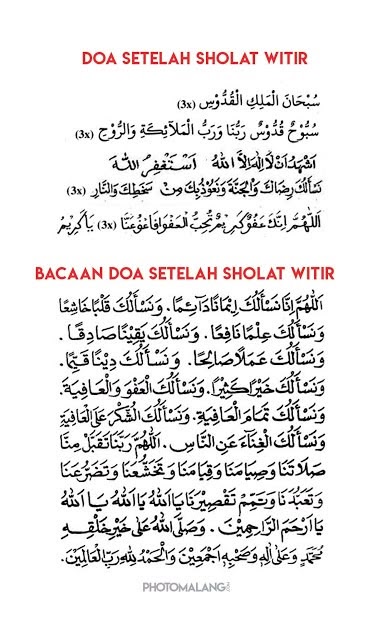 DOA SETELAH SHOLAT WITIR
سُبْحَانَ الْمَلِكِ الْقُدُّوْسِ (3x)
سُبُّوْحٌ قُدُّوْسٌ رَبُّنَا وَرَبُّ الْمَلَآئِكَةِ وَالرُّوْحِ (3x)
اَشْهَدُ اَنْ لَا اِلٰهَ اِلَّا اللهُ اَسْتَغْفِرُ اللهَ
نَسْأَلُكَ رِضَاكَ وَالْجَنَّةَ وَنَعُوْذُ بِكَ مِنْ سَخَطِكَ وَالنَّارِ (3x)
اَللّٰهُمَّ اِنَّكَ عَفُوٌّ كَرِيْمٌ تُحِبُّ الْعَفْوَ فَاعْفُ عَنَّا (3x) يَا كَرِيْمُ
BACAAN DOA SETELAH SHOLAT WITIR
اَللّٰهُمَّ اِنَّا نَسْأَلُكَ اِيْمَانًا دَآئِمًا. وَنَسْأَلُكَ قَلْبًا خَاشِعًا
وَنَسْأَلُكَ عِلْمًا نَافِعًا. وَنَسْأَلُكَ يَقِيْنًا صَادِقًا.
وَنَسْأَلُكَ عَمَلًا صَالِحًا. وَنَسْأَلُكَ دِيْنًا قَيِّمًا.
وَنَسْأَلُكَ خَيْرًا كَثِيْرًا. وَنَسْأَلُكَ الْعَفْوَ وَالْعَافِيَةَ.
وَنَسْأَلُكَ تَمَامَ الْعَافِيَةِ. وَنَسْأَلُكَ الشُّكْرَ عَلَى الْعَافِيَةِ
وَنَسْأَلُكَ الْغِنَآءَ عَنِ النَّاسِ. اَللّٰهُمَّ رَبَّنَا تَقَبَّلْ مِنَّا
صَلَاتَنَا وَصِيَامَنَا وَقِيَامَنَا وَتَخَشُّعَنَا وَتَضَرُّعَنَا
وَتَعَبُّدَنَا وَتَمِّمْ تَقْصِيْرَنَا يَا اَللهُ يَا اَللهُ يَا اَللهُ
يَا اَرْحَمَ الرَّاحِمِيْنَ. وَصَلَّى اللهُ عَلَى خَيْرِ خَلْقِهِ
مُحَمَّدٍ وَعَلَى اٰلِهِ وَصَحْبِهِ اَجْمَعِيْنَ وَالْحَمْدُ لِلّٰهِ رَبِّ الْعَالَمِيْنَ.
PHOTOMALANG